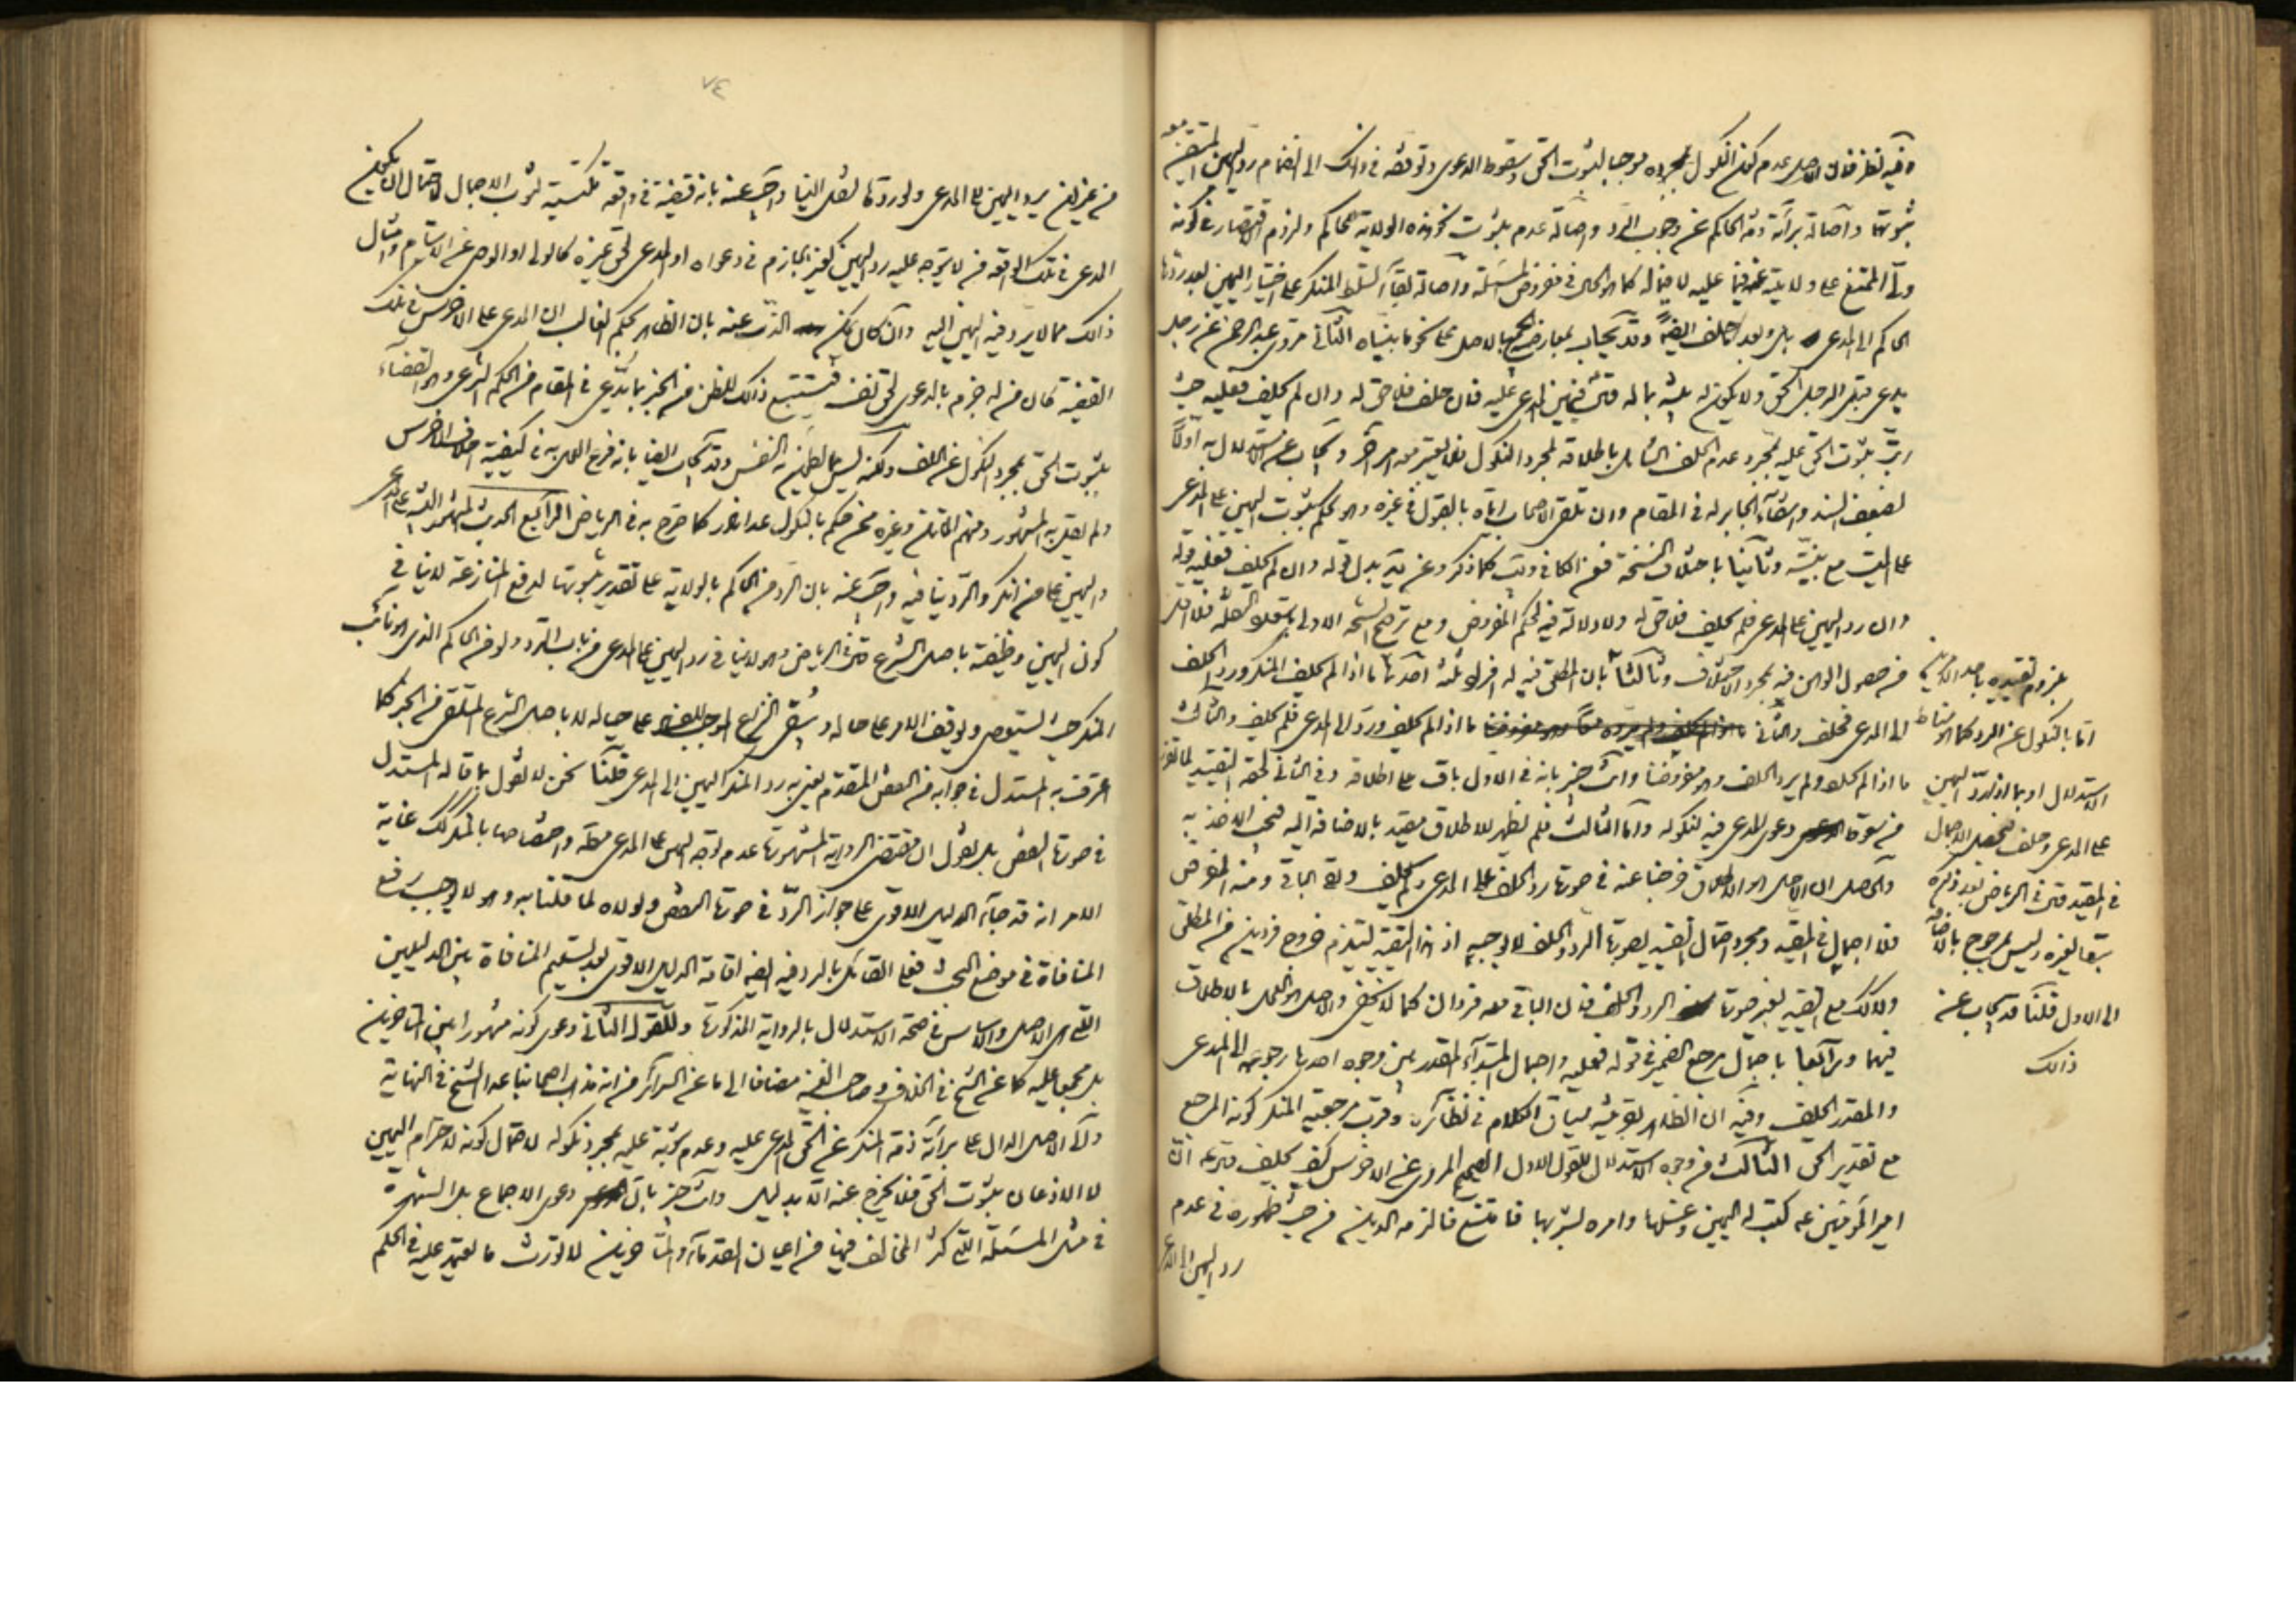 وفيه نظر فان الاصل عدم كون النكول بمجرده موجبا لثبوت الحق وسقوط الدعوى وتوقفه في ذلك الى انضمام رد اليمين المتيقن معه
ثبوتها واصالة برائة ذمة الحاكم عن وجوب الرد واصالة عدم ثبوت نحو هذه الولاية للحاكم ولزوم الاقتصار في كونه
ولي الممتنع على ولايته فيما عليه لا فيما له كما هو الحال في مفروض المسئلة واصالة بقاء تسلط المنكر على اختيار اليمين بعد ردها
الحاكم الى المدعى بل وبعد الحلف ايضا وقد يجاب بمعارضتهما بالاصل على نحو ما بيناه الثاني مروى عبد الرحمن عن رجل
يدعى قبل الرجل الحق ولا يكون له بينة بماله قال فيمين المدعى عليه فان حلف فلا حق له وان لم يحلف فعليه حيث
رتب ثبوت الحق عليه بمجرد عدم الحلف الشامل باطلاقه لمجرد النكول فلا يعتبر معه امر آخر ويجاب عن الاستدلال به اولا
لضعف السند وانتفاء الجابر له في المقام وان تلقى الاصحاب اياه بالقبول في غيره وهو الحكم بثبوت اليمين على المدعى
على الميت مع بينته وثانيا باختلاف النسخة ففي الكافي وئب كما ذكر وعن يه بدل قوله وان لم يحلف فعليه قوله
وان رد اليمين على المدعى فلم يحلف فلا حق له ولا دلالة فيه لحكم المفروض ومع ترجيح النسخة الاولى
من حصول الوهن فيه بمجرد الاختلاف وثالثا بان المطلق فيه له افراد ثلثة احدها ما اذا لم يحلف المنكر ورد الحلف
الى المدعى فحلف والثاني ما اذا لم يحلف ورد الى المدعى فلم يحلف والثالث
ما اذا لم يحلف ولم يرد الحلف وهو مفروضنا وانت خبير بانه في الاول باق على اطلاقه وفي الثاني لحقه التقييد
من سقوط دعوى المدعى فيه لنكوله واما الثالث فلم يظهر للاطلاق مقيد بالاضافة اليه فيجب الاخذ به
والحاصل ان الاصل هو الاطلاق خرجنا عنه في صورة رد الحلف على المدعى ولم يحلف وبقى الباقي ومنه المفروض
فلا اجمال في المقيد ومجرد احتمال تقييده بصورة الرد والحلف لا يوجبه اذ هذا التقييد يستلزم خروج فردين من المطلق
ولا كك مع تقييده بغير صورة الرد والحلف فان الباقي معه فردان كما لا يخفى والاصل هو العمل بالاطلاق
فيهما ورابعا باحتمال مرجع الضمير في قوله فعليه واجمال المبتداء المقدر بين وجوه احدها رجوعه الى المدعى
والمقدر الحلف وفيه ان الظاهر بقرينة سياق الكلام في نظائره وقرب مرجعية المنكر كونه المرجع
مع تقدير الحق الثالث من وجوه الاستدلال للقول الاول الصحيح المروى عن الاخرس كيف يحلف قال ان
امير المؤمنين ع كتب له اليمين وغسلها وامره بشربها فامتنع فالزمه الدين من حيث ظهوره في عدم
رد اليمين الى المدعى
بلزوم تقييده باحد الامرين
اما بالنكول عن الرد كما هو مناط
الاستدلال او بما اذا رد اليمين
على المدعى وحلف فيحصل الاجمال
في المقيد قال في الرياض بعد ذكره
تبعا لغيره وليس بمرجوح بالاضافة
الى الاول قلنا قد يجاب عن
ذلك
٧٤
من غير ان يرد اليمين على المدعى ولو ردها لنقل الينا واجيب عنه بانه قضية في واقعة تكتسيه ثوب الاجمال لاحتمال ان يكون
المدعى في تلك الواقعة من لا يتوجه عليه رد اليمين كغير الجازم في دعواه او المدعى لحق غيره كالولى او الوصى عن الايتام وامثال
ذلك مما لا يرد فيه اليمين اليه وان كان يمكن الذب عنه بان الظاهر بحكم الغالب ان المدعى على الاخرس في تلك
القضية كان من له جزم بالدعوى لحق نفسه فيستتبع ذلك للظن من الخبر بما يدعى في المقام من الحكم الشرعي والقضاء
بثبوت الحق بمجرد النكول عن الحلف ولكنه ليس مما يطمئن به النفس وقد يجاب ايضا بانه فرع العمل به في كيفية احلاف الاخرس
ولم يعمل به المشهور ومنهم الماتن وغيره ممن حكم بالنكول عدا نادر كما صرح به في الرياض الرابع الحديث المشهور البينة على المدعى
واليمين على من انكر والرد ينافيه واجيب عنه بان الرد من الحاكم بالولاية على تقدير ثبوتها لدفع المنازعة لا ينافي
كون اليمين وظيفة باصل الشرع قال في الرياض وهو لا ينافي رد اليمين على المدعى من باب الرد ولو من الحاكم الذي هو نائب
المنكر حيث يستوصى ويوقف الامر على حاله ويبقى النزاع الموجب للفساد على حياله لا باصل الشرع المتلقى من الخبر كما
اعترف به المستدل في جوابه من النقض المتقدم يعنى به رد المنكر اليمين الى المدعى قلنا نحن لا نقول بما قاله المستدل
في صورة النقض بل نقول ان مقتضى الرواية المشهورة عدم توجه اليمين على المدعى مطلقا واختصاصها بالمنكر كك غاية
الامر انه قد جاء الدليل الاقوى على جواز الرد في صورة النقض ولولاه لما قلنا به وهو لا يوجب رفع
المنافاة في موضع البحث فعلى القائل بالرد فيه ايضا اقامة الدليل الاقوى بعد تسليم المنافاة بين الدليلين
التي هي الاصل والاساس في صحة الاستدلال بالرواية المذكورة وللقول الثاني دعوى كونه مشهورا بين المتاخرين
بل مجمعا عليه كما عن الشيخ في الخلاف وصاحب الغنية مضافا الى ما عن السرائر من انه مذهب اصحابنا عدا الشيخ في النهاية
ولنا الاصل الدال على برائة ذمة المنكر عن الحق المدعى عليه وعدم ثبوته عليه بمجرد نكوله لاحتمال كونه لاحترام اليمين
لا الاذعان بثبوت الحق فلا يخرج عنه الا بدليل وانت خبير بان دعوى الاجماع بل الشهرة
في مثل المسئلة التي كثر المخالف فيها من اعيان القدماء والمتاخرين لا تورث ما يعتمد عليه في الحكم